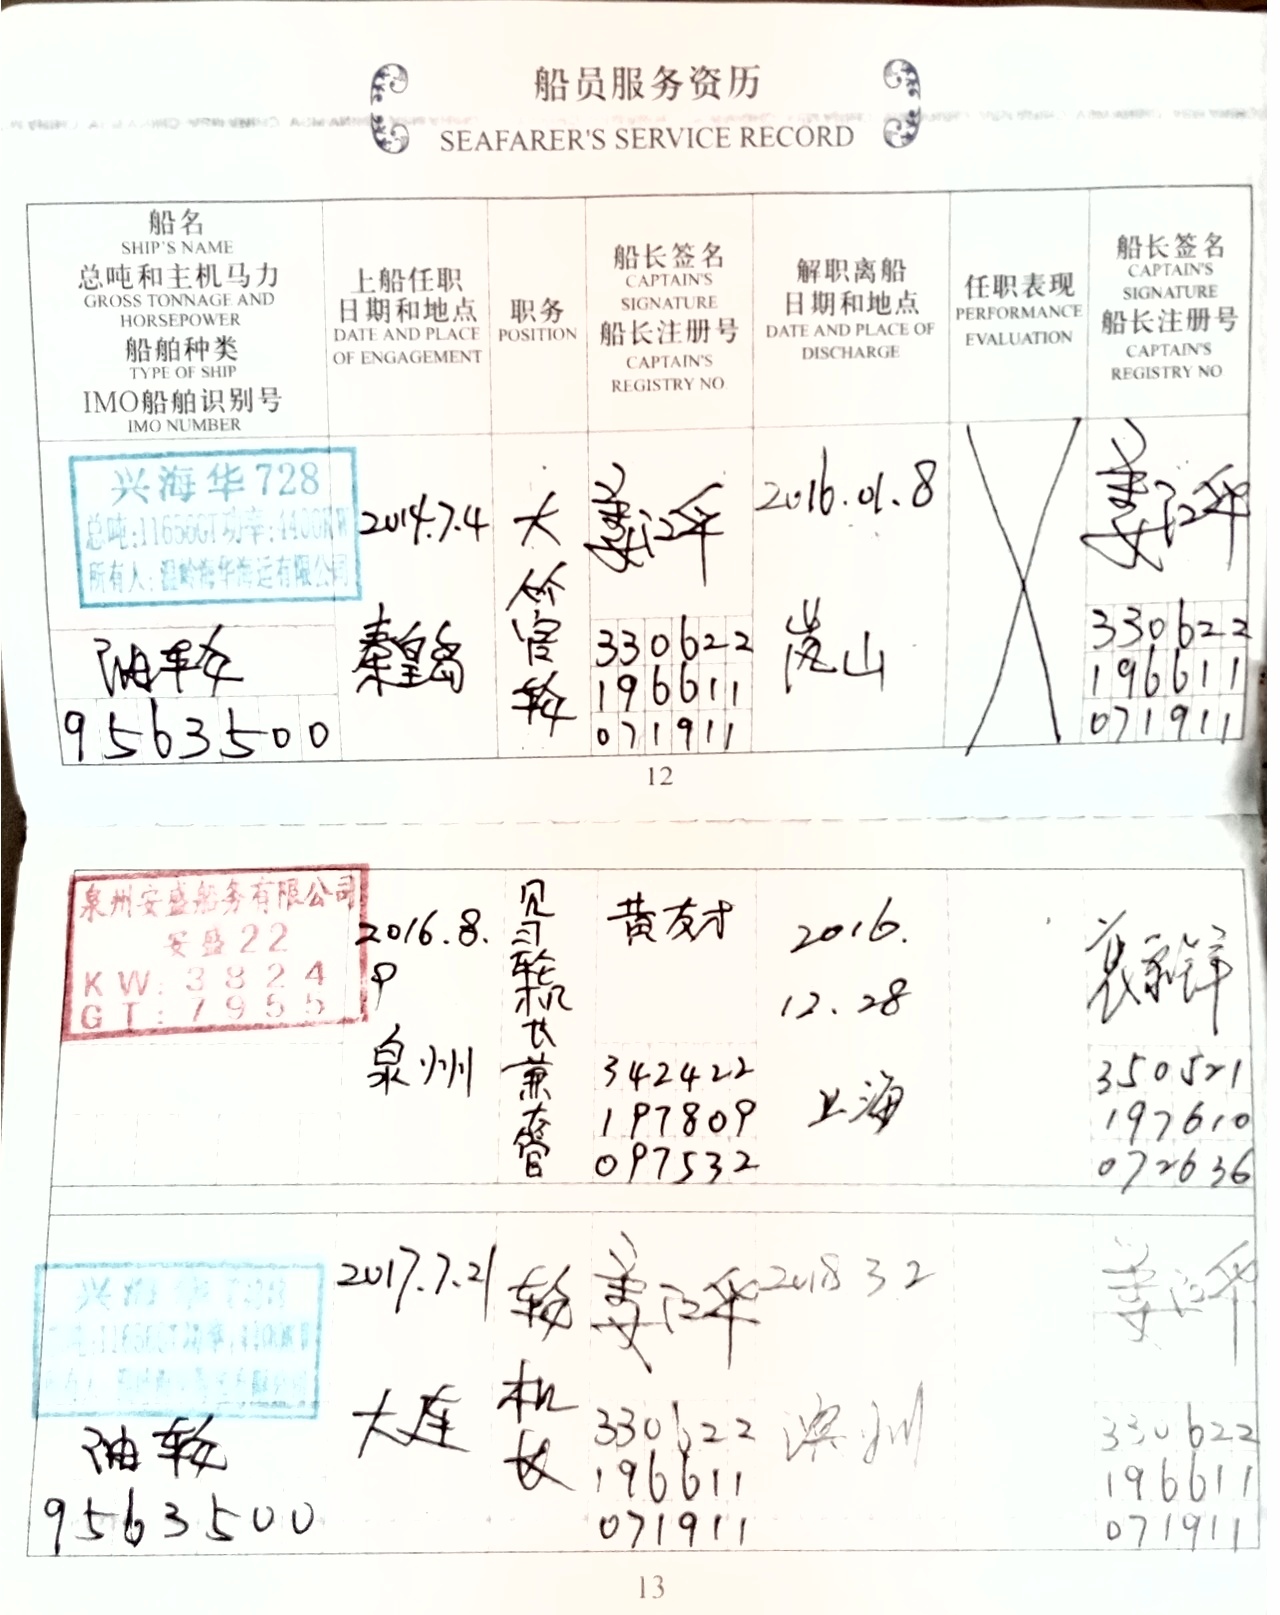 船员服务资历
SEAFARER'S SERVICE RECORD
船名
SHIP'S NAME
总吨和主机马力
GROSS TONNAGE AND
HORSEPOWER
船舶种类
TYPE OF SHIP
IMO船舶识别号
IMO NUMBER
上船任职
日期和地点
DATE AND PLACE
OF ENGAGEMENT
职务
POSITION
船长签名
CAPTAIN'S
SIGNATURE
船长注册号
CAPTAIN'S
REGISTRY NO
解职离船
日期和地点
DATE AND PLACE OF
DISCHARGE
任职表现
PERFORMANCE
EVALUATION
船长签名
CAPTAIN'S
SIGNATURE
船长注册号
CAPTAIN'S
REGISTRY NO
兴海华728
总吨:11656GT功率:4400KW
所有人:温岭海华海运有限公司
油轮
9563500
2014.7.4
秦皇岛
大
管
轮
姜江平
330622
196611
071911
2016.01.8
岚山
姜江平
330622
196611
071911
12
泉州安盛船务有限公司
安盛22
KW:3824
GT:7955
2016.8.
9
泉州
见习轮机长兼大管
黄友才
342422
197809
097532
2016.
12.28
上海
350521
197610
072636
油轮
9563500
2017.7.21
大连
轮
机
长
姜江平
330622
196611
071911
2018 3 2
滨州
姜江平
330622
196611
071911
13